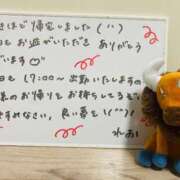 きほど帰宅しました(^^)
日もお遊びいただき ありがとう
ざいます♡
日も 17:00〜 出勤いたしますの
様のお帰りをお待ちしてるぞ
やすみなさい、良い夢を!(^^)
れあ